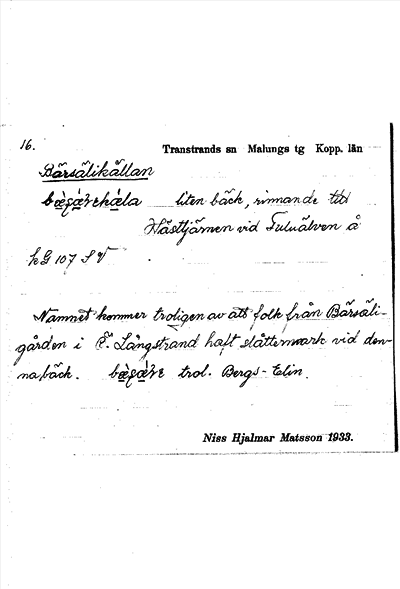 16.
Transtrands sn Malungs tg Kopp. län
Bärsälikällan
liten bäck, rinnande till
Hästtjärnen vid Fuluälven å
kG 107 SV
Namnet kommer troligen av att folk från Bärsäli-
gården i Ö. Långstrand haft slåttermark vid den-
na bäck. trol. Bergs-Elin.
Niss Hjalmar Matsson 1933.